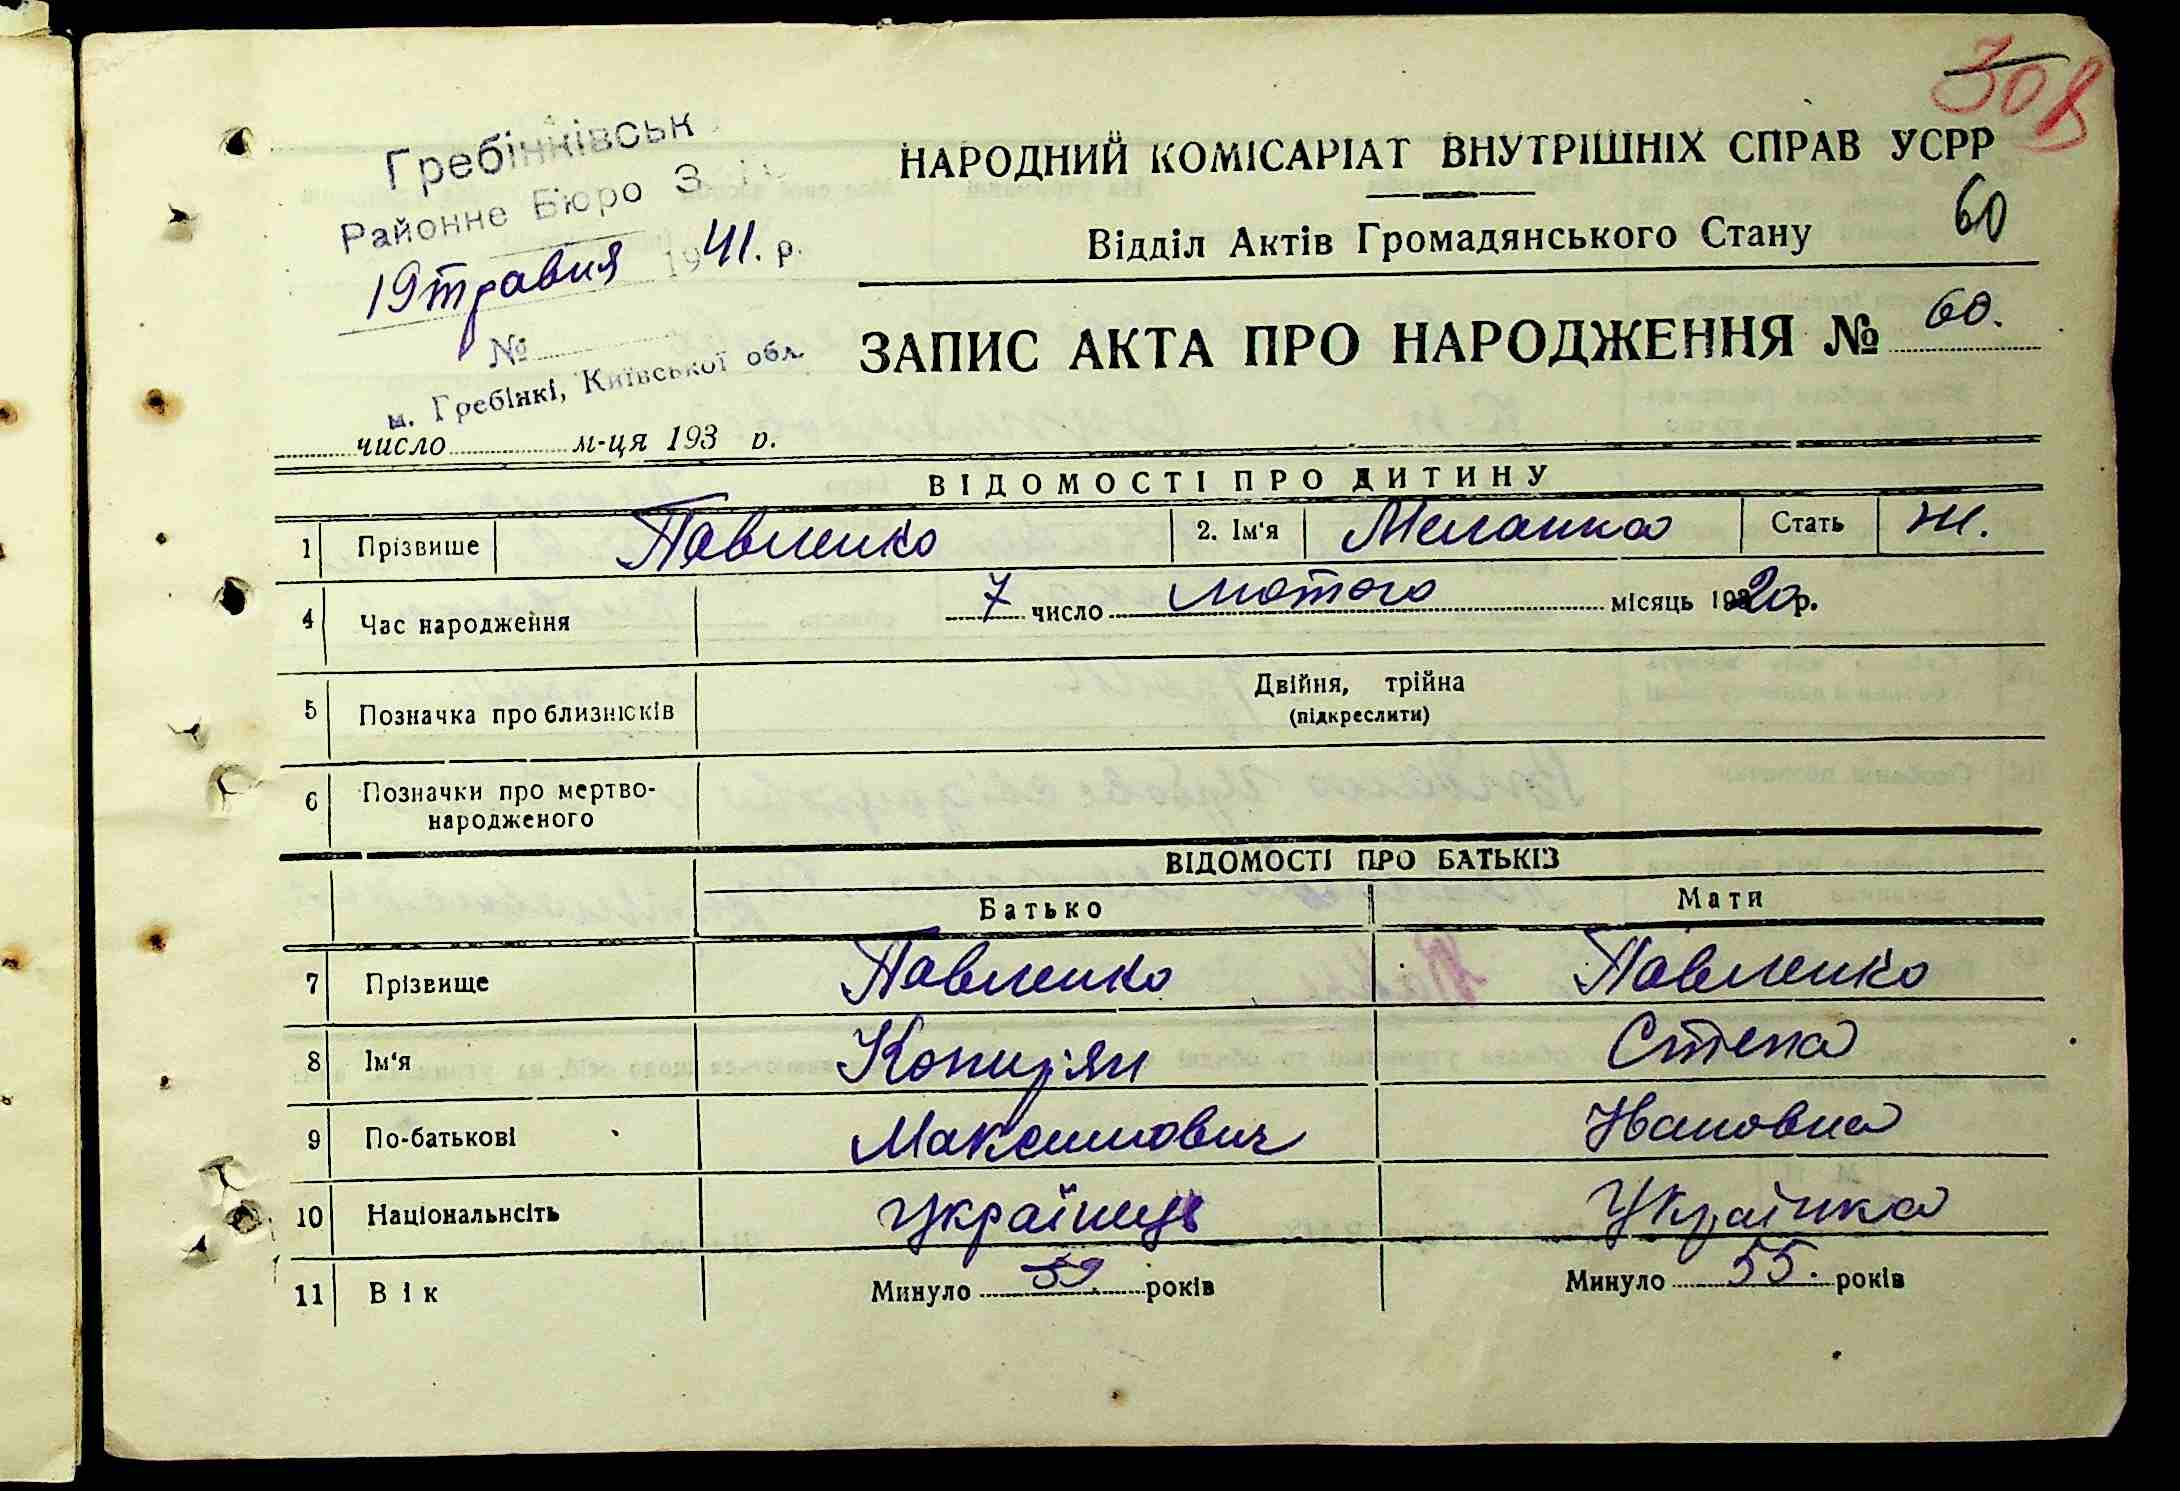 308
Гребінківськ
Районне Бюро З
19 травня 1941. р.
№
м. Гребінкі, Київської обл.
НАРОДНИЙ КОМІСАРІАТ ВНУТРІШНІХ СПРАВ УСРР
Відділ Актів Громадянського Стану 60
ЗАПИС АКТА ПРО НАРОДЖЕННЯ № 60.
число м-ця 193 р.
ВІДОМОСТІ ПРО ДИТИНУ
1 Прізвище Павленко 2. Ім'я Меланка Стать Ж.
4 Час народження 7 число лютого місяць 1920р.
5 Позначка про близнюсків Двійня, трійна
(підкреслити)
6 Позначки про мертво-
народженого
ВІДОМОСТІ ПРО БАТЬКІВ
Батько Мати
7 Прізвище Павленко Павленко
8 Ім'я Копирян Степа
9 По-батькові Максимович Ивановна
10 Національнсіть Українець Українка
11 Вік Минуло 59 років Минуло 55. років